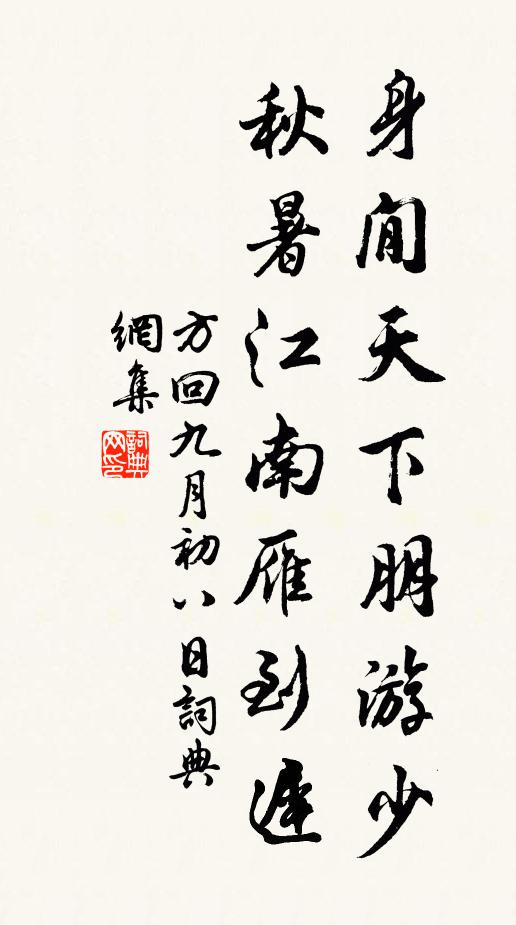 身閒天下朋游少
秋暑江南雁到遲
方回九月初八日詞典
網集
詞典网印